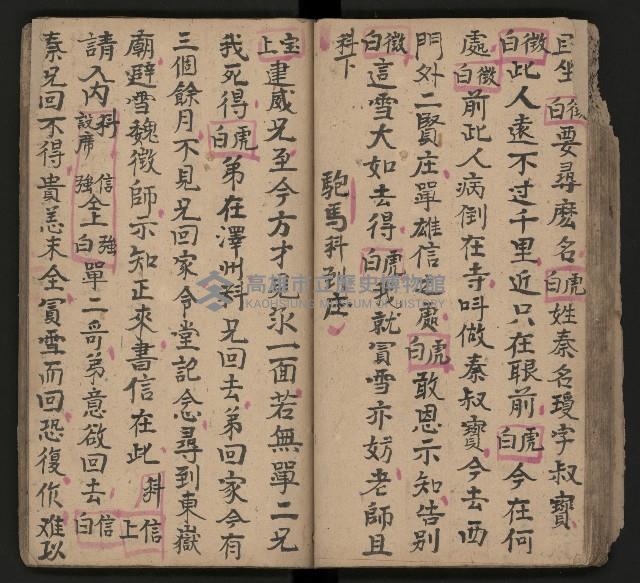 且坐
白徵要尋麽名白虎姓秦名瓊字叔寶
白徵此人遠不过千里近只在眼前白虎今在何
處白徵前此人病倒在寺叫做秦叔寶今去西
門外二賢庄單雄信處白虎敢恩示知告別
白徵這雪大如去得白虎我就冐雪亦妨老師且
科下
馳馬科到庄
上宝建威兄至今方才見永一面若無單二兄
我死得白虎弟在澤州科兄回去弟回家今有
三個餘月不見兄回家令堂記念尋到東嶽
廟避雪魏徵師示知正來書信在此科上信
請入內科設席強信仝上白強單二哥弟意欲回去白信
秦兄回不得貴恙未全冐雪而回恐復作难以
高雄市立歷史博物館
KAOHSIUNG MUSEUM OF HISTORY